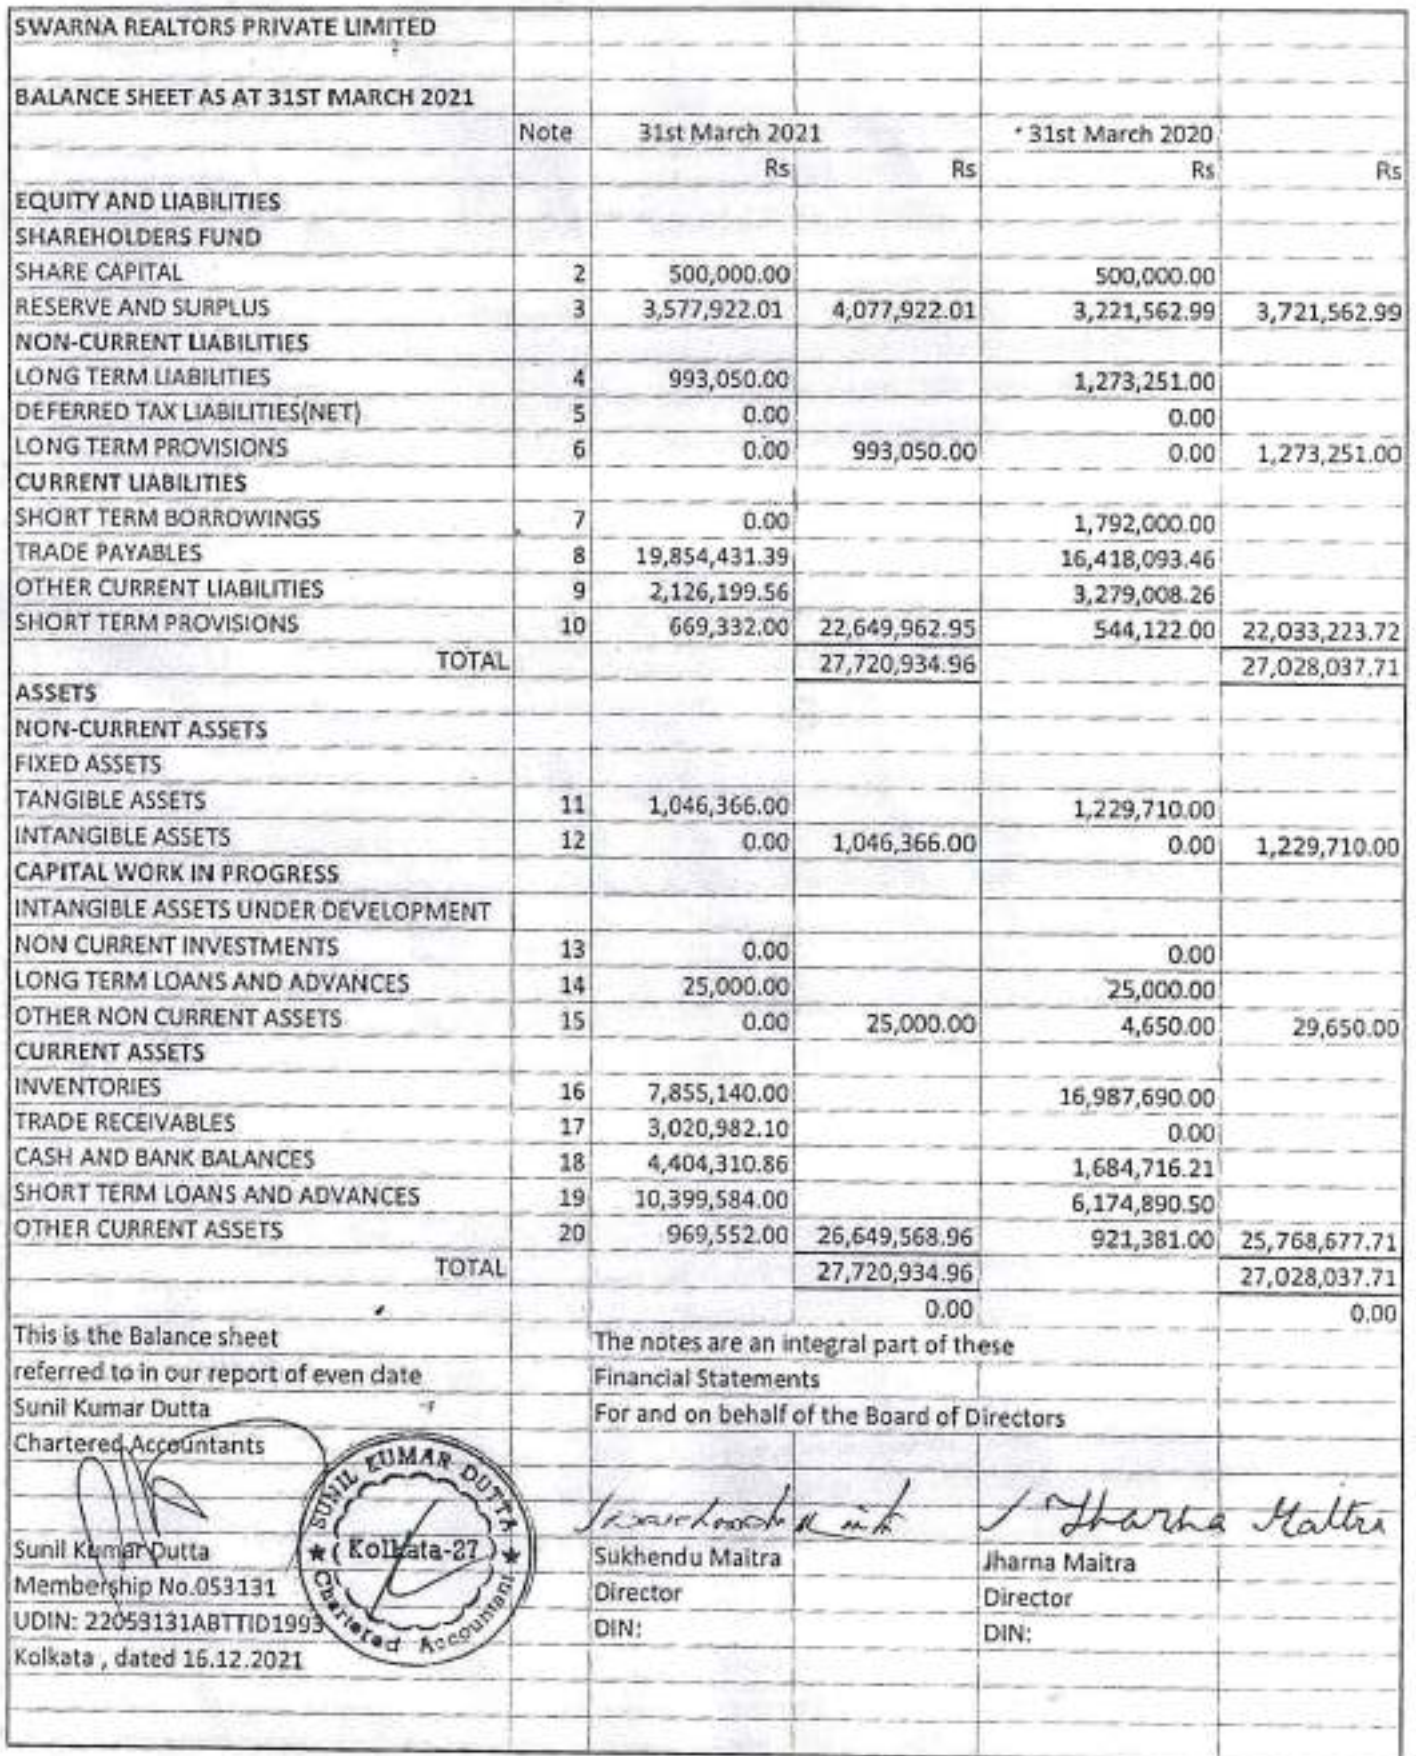 SWARNA REALTORS PRIVATE LIMITED
BALANCE SHEET AS AT 31ST MARCH 2021
Note 31st March 2021 31st March 2020
Rs Rs Rs Rs
EQUITY AND LIABILITIES
SHAREHOLDERS FUND
SHARE CAPITAL 2 500,000.00 500,000.00
RESERVE AND SURPLUS 3 3,577,922.01 4,077,922.01 3,221,562.99 3,721,562.99
NON-CURRENT LIABILITIES
LONG TERM LIABILITIES 4 993,050.00 1,273,251.00
DEFERRED TAX LIABILITIES(NET) 5 0.00 0.00
LONG TERM PROVISIONS 6 0.00 993,050.00 0.00 1,273,251.00
CURRENT LIABILITIES
SHORT TERM BORROWINGS 7 0.00 1,792,000.00
TRADE PAYABLES 8 19,854,431.39 16,418,093.46
OTHER CURRENT LIABILITIES 9 2,126,199.56 3,279,008.26
SHORT TERM PROVISIONS 10 669,332.00 22,649,962.95 544,122.00 22,033,223.72
TOTAL 27,720,934.96 27,028,037.71
ASSETS
NON-CURRENT ASSETS
FIXED ASSETS
TANGIBLE ASSETS 11 1,046,366.00 1,229,710.00
INTANGIBLE ASSETS 12 0.00 1,046,366.00 0.00 1,229,710.00
CAPITAL WORK IN PROGRESS
INTANGIBLE ASSETS UNDER DEVELOPMENT
NON CURRENT INVESTMENTS 13 0.00 0.00
LONG TERM LOANS AND ADVANCES 14 25,000.00 25,000.00
OTHER NON CURRENT ASSETS 15 0.00 25,000.00 4,650.00 29,650.00
CURRENT ASSETS
INVENTORIES 16 7,855,140.00 16,987,690.00
TRADE RECEIVABLES 17 3,020,982.10 0.00
CASH AND BANK BALANCES 18 4,404,310.86 1,684,716.21
SHORT TERM LOANS AND ADVANCES 19 10,399,584.00 6,174,890.50
OTHER CURRENT ASSETS 20 969,552.00 26,649,568.96 921,381.00 25,768,677.71
TOTAL 27,720,934.96 27,028,037.71
0.00 0.00
This is the Balance sheet The notes are an integral part of these
referred to in our report of even date Financial Statements
Sunil Kumar Dutta For and on behalf of the Board of Directors
Chartered Accountants
SUNIL KUMAR DUTTA
Kolkata-27
Chartered Accountant
Jharna Maitra
Sunil Kumar Dutta Sukhendu Maitra Jharna Maitra
Membership No.053131 Director Director
UDIN: 22053131ABTTID1993 DIN: DIN:
Kolkata , dated 16.12.2021